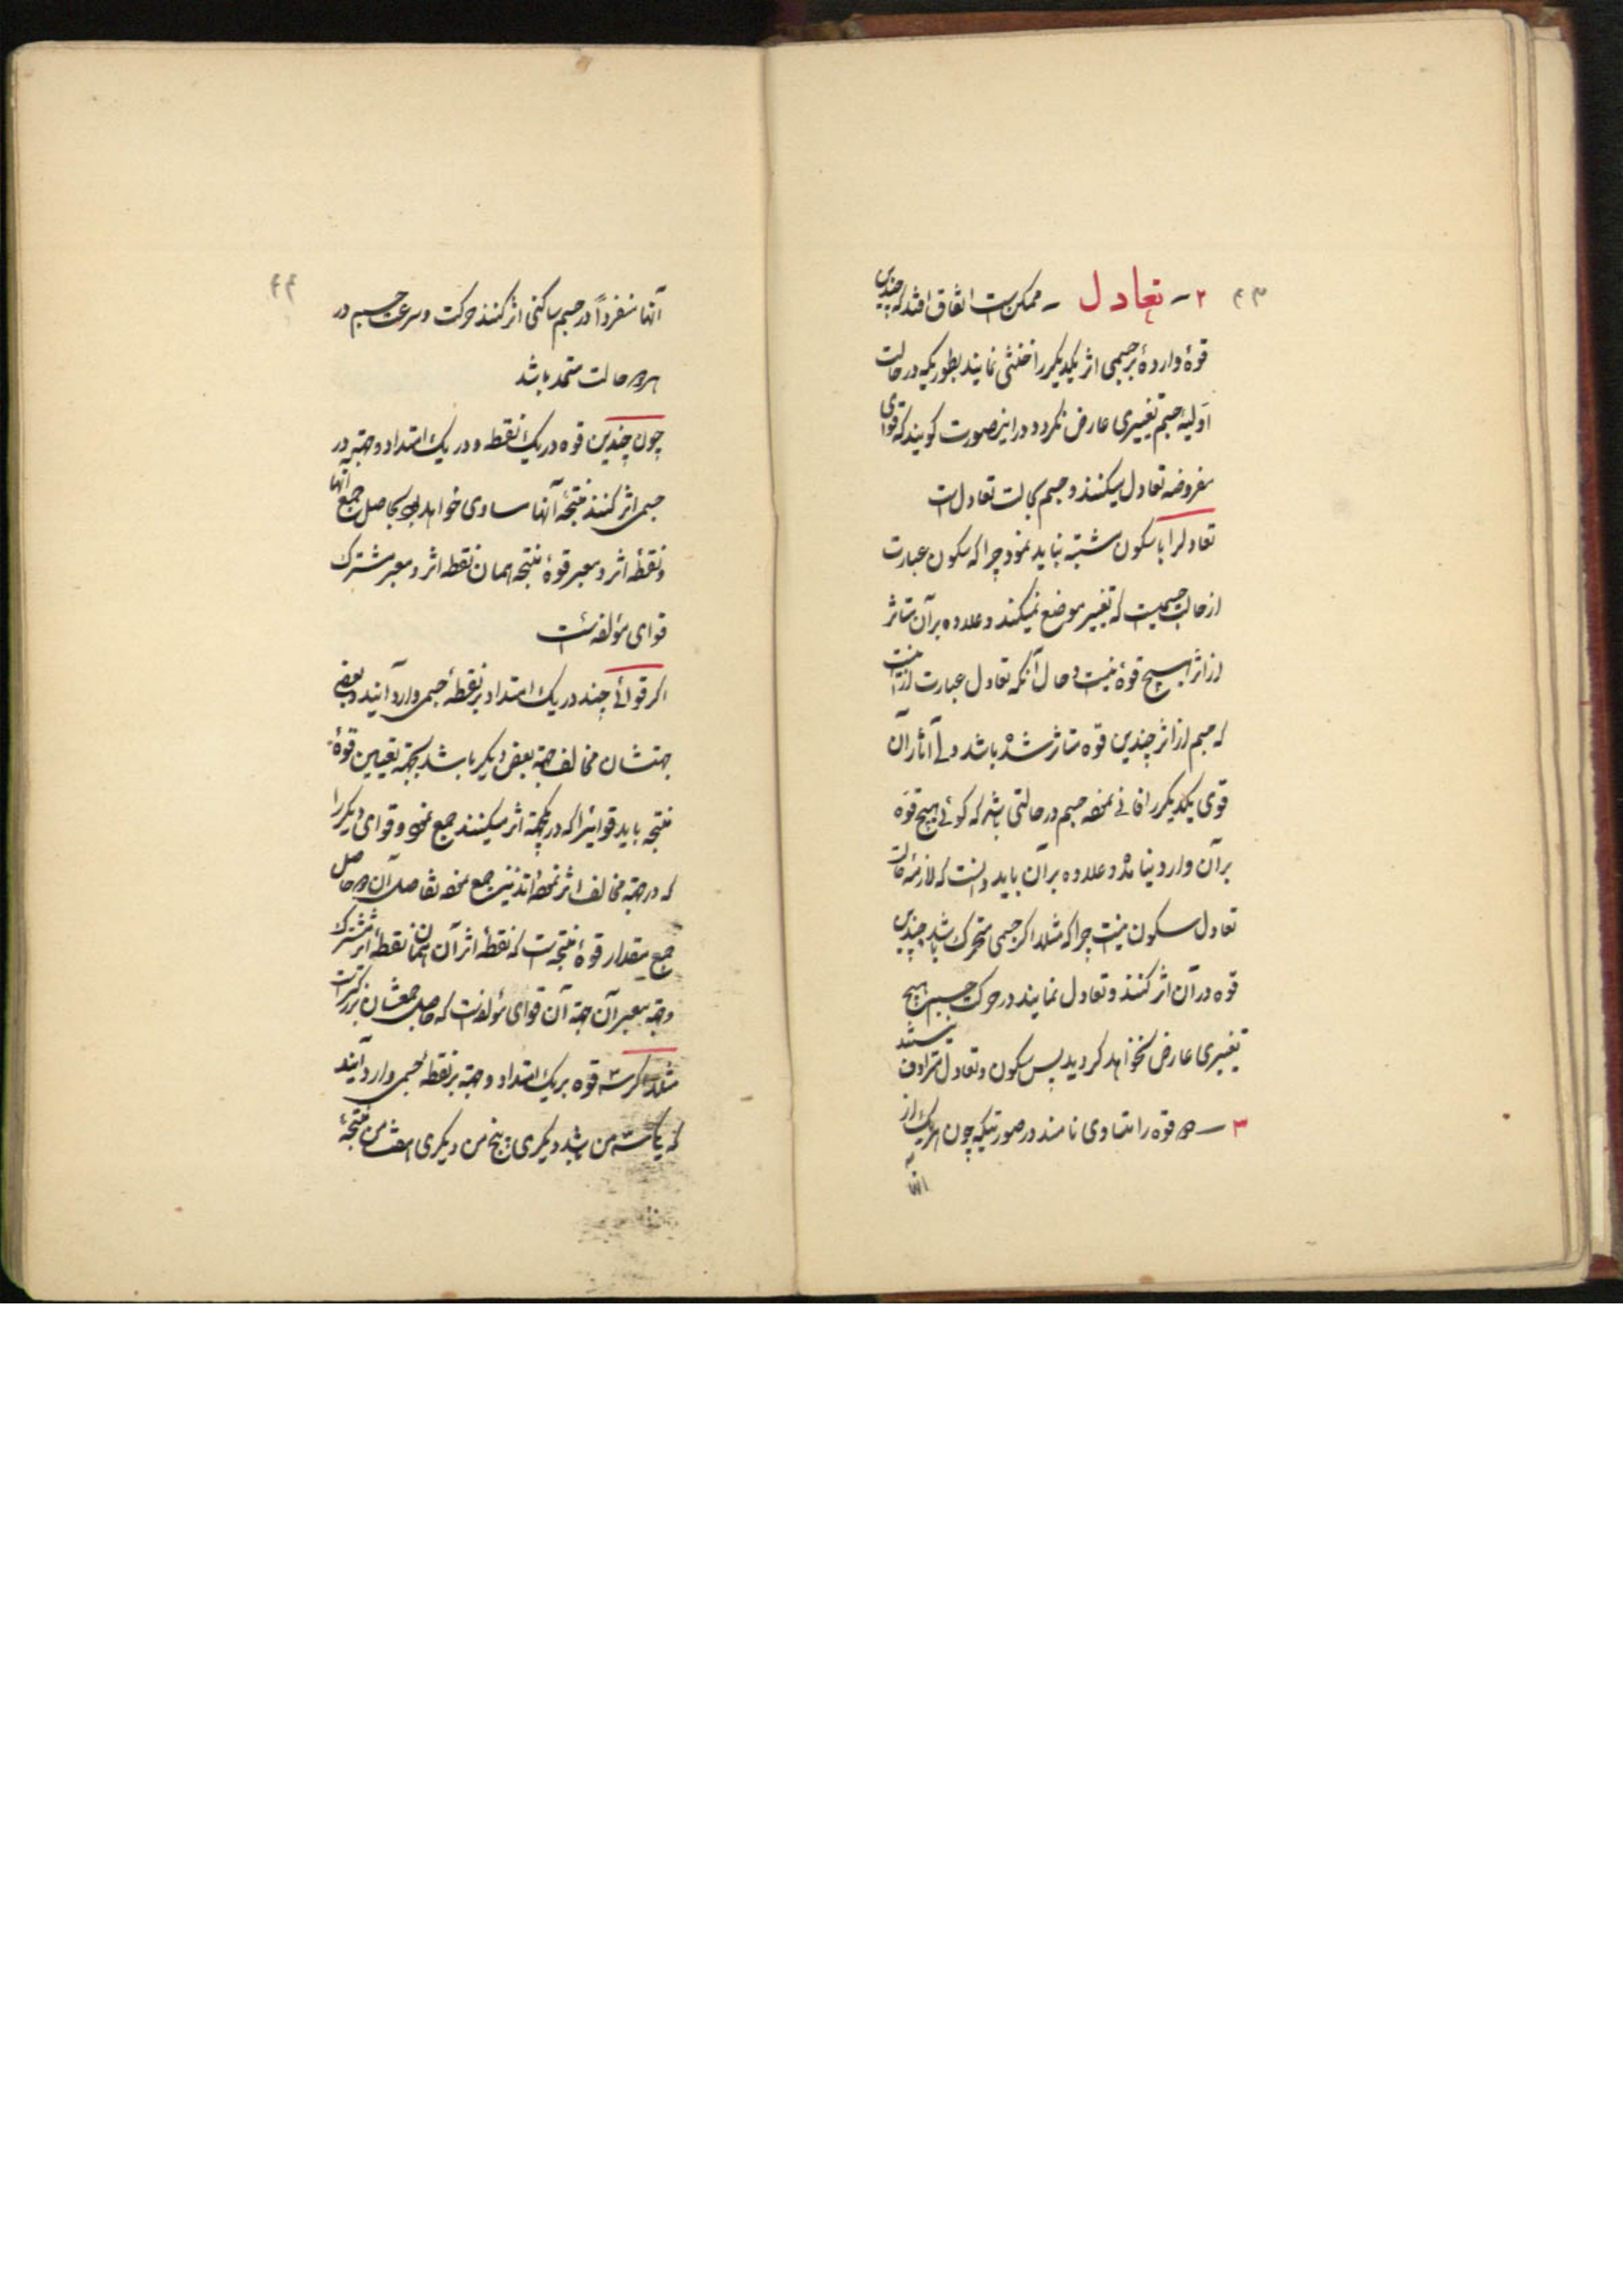 ۴۳
۲ – تعادل – ممکن است اتفاق افتد که چندین
قوهٔ واردهٔ بر جسمی اثر یکدیگر را خنثی نمایند بطوریکه در حالت
اوّلیهٔ جسم تغییری عارض نگردد در اینصورت کویند که قوای
مفروضه تعادل میکنند و جسم بحالت تعادل است
تعادلرا با سکون مشتبه نباید نمود چرا که سکون عبارت
از حالت جسمیست که تغییر موضع نمیکند و علاوه بر آن متاثر
از اثر هیچ قوهٔ نیست و حال آنکه تعادل عبارت از آنست
که جسم از اثر چندین قوه متاثر شده باشد ولی آثار آن
قوی یکدیکر را فانی نموده جسم در حالتی باشد که کوئی هیچ قوّه
بر آن وارد نیامده و علاوه بر آن باید دانست که لازمهٔ حالت
تعادل سکون نیست چرا که مثلا اکر جسمی متحرک باشد و چندین
قوه در آن اثر کنند و تعادل نمایند در حرکت جسم هیچ
تغییری عارض نخواهد کردید پس سکون و تعادل مترادف نیستند
۳ – دو قوه را متساوی نامند در صورتیکه چون هر یک از
آنها
۴۴
آنها منفرداً در جسم ساکنی اثر کنند حرکت و سرعت جسم در
هر دو حالت متحد باشد
چون چندین قوه در یک نقطه و در یک امتداد و جهتی در
جسمی اثر کنند نتیجهٔ آنها مساوی خواهد بود بحاصل جمع آنها
و نقطهٔ اثر و معبر قوهٔ نتیجه همان نقطه اثر و معبر مشترک
قوای مؤلفه است
اکر قوائی چند در یک امتداد بر نقطهٔ جسمی وارد آیند و بعضی
جهتشان مخالف جهة بعض دیکر باشد بجهة تعیین قوهٔ
نتیجه باید قوائیرا که در یکجهة اثر میکنند جمع نموده و قوای دیکر را
که در جهة مخالف اثر نموده‌اند نیز جمع نموده تفاضل آن دو حاصل
جمع مقدار قوهٔ نتیجه است که نقطهٔ اثر آن همان نقطهٔ اثر مشترک
و جهة معبر آن جهة آن قوای مؤلفه است که حاصل جمعشان بزرکتر است
مثلا اکر سه قوه بر یک امتداد و جهة بر نقطهٔ جسمی وارد آیند
که یک سه من باشد دیکری پنج من دیکری هفت من نتیجهٔ